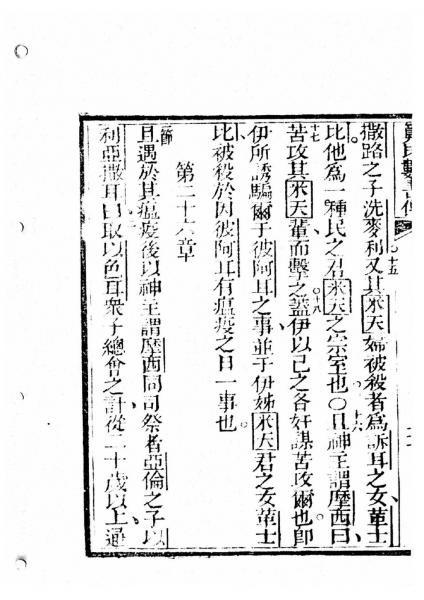 撒路之子洗麥利又其米天婦被殺者爲訴耳之女革士
比他爲一種民之君米天之宗至也〇且神主謂摩西曰
苦攻其米天輩而擊之蓋伊以己之各奸謀苦攻爾也卽
伊所誘騙爾于彼阿耳之事並于伊姊米天君之女革士
比被殺於因彼阿耳有瘟疫之日一事也
第二十六章
且遇於其瘟疫後以神主謂摩西同司祭者亞倫之子以
利亞撒耳曰取以色耳衆子總會之計從二十歲以上通